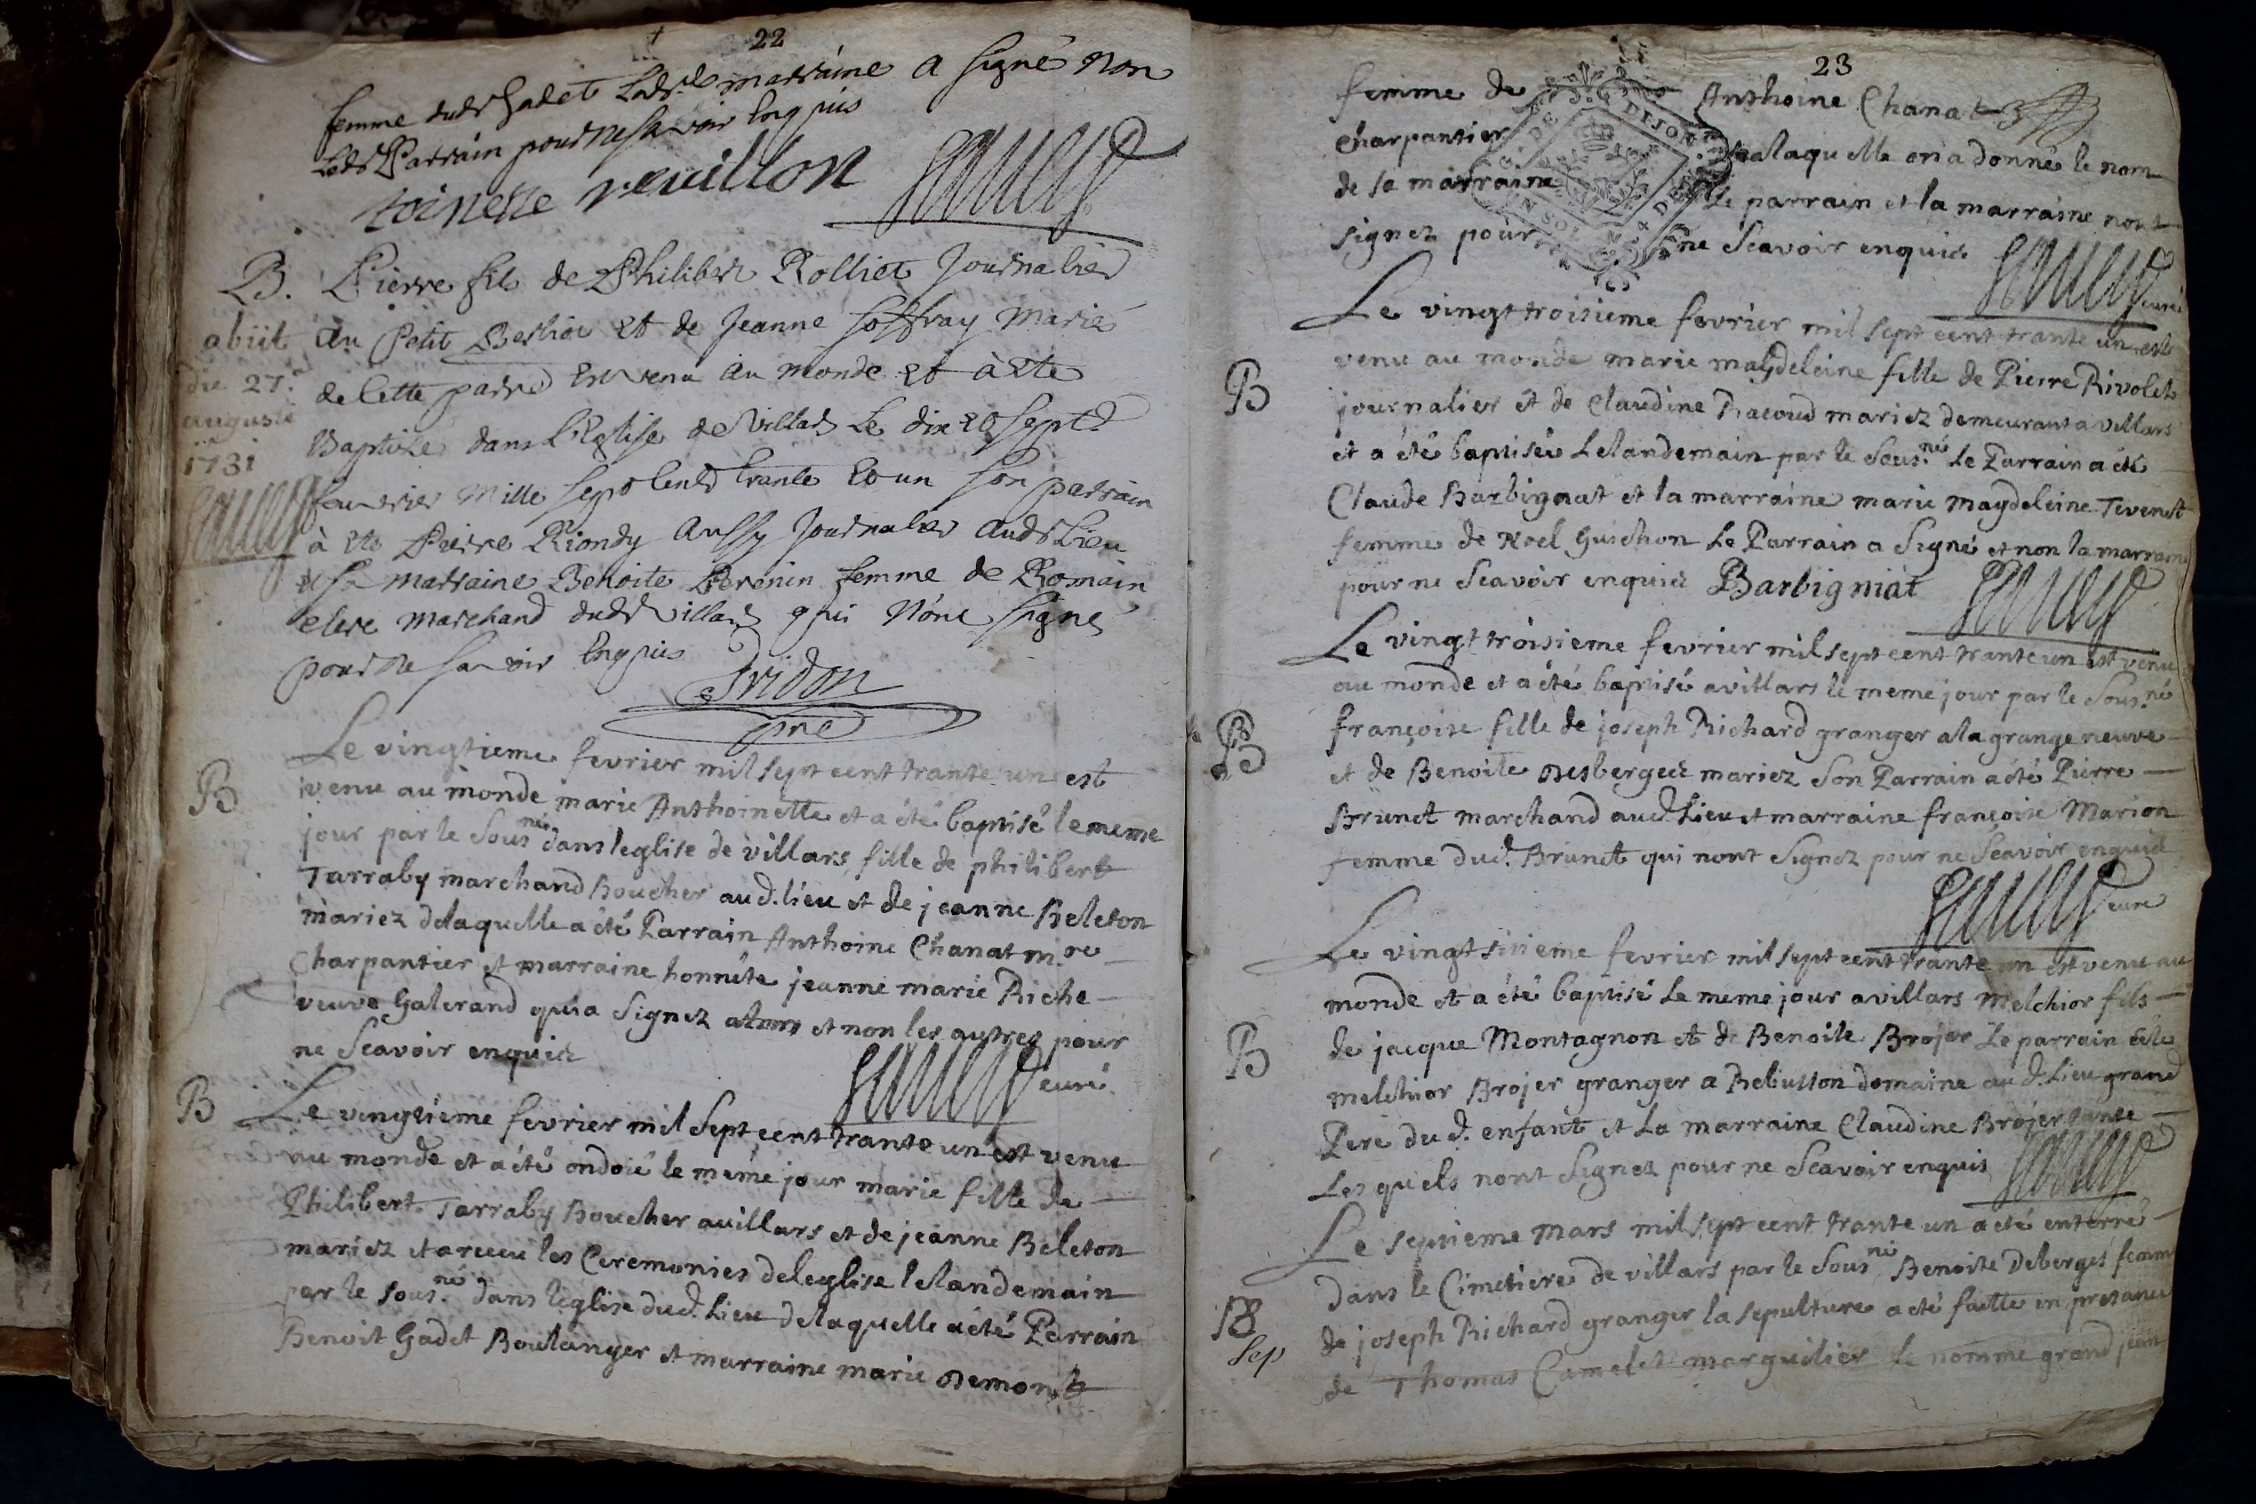 22
femme dudt Gadet Ladte marraine a signé non
Ledt Parrain pour ne savoir Enquis
toinette reuillon
B. Pierre fils de Philibert Rolliet Journalier
abiit au petit Berliot et de Jeanne Joffray Marié
die 27a de Cette parr Est venu au monde et à Ete
auguste Baptisé dans L'Eglise de Villars Le dix et sept
1731 fevrier Mille sept Cents trante et un son parrain
à ete Pierre Riondy aussy Journalier audt Lieu
et sa marraine Benoite femme de Romain
clere marchand dudt villars qui N'ont signé
pour ne savoir Enquis
Pridon
Le vingtieme fevrier mil sept cent trante un est
B venu au monde marie Anthoinette et a été baptisé le meme
jour par le Sousné dans leglise de villars fille de philibert
Tarraby marchand Boucher aud. lieu et de jeanne Beleton
mariez delaquelle a été Parrain Anthoine Chanat m.re
Charpantier et marraine honnéte jeanne marie Riche
veuve Galerand qui a Signez et non les autres pour
ne Scavoir enquis
curé
B Le vengtieme fevrier mil Sept cent trante un est venu
au monde et a été ondoié le méme jour marie fille de
Philibert Tarraby Boucher avillars et de jeanne Beleton
mariez et a receu les Ceremonies deleglise lelandemain
par le sous.né dans leglise dud. Lieu delaquelle a été Parrain
Benoit Gadet Boulanger et marraine marie Demont
23
femme de Anthoine Chanat
Charpantier alaquelle on a donné le nom
de sa marraine Le parrain et la marraine nont
signez pour ne Scavoir enquis
curé
Le vingt troisieme fevrier mil sept cent trante un est
venu au monde marie magdeleine fille de Pierre Rivolet
B journalier et de Claudine Racoud mariez demeurant a villars
et a été baptisée Lelandemain par le Sous.né Le Parrain a été
Claude Barbignat et la marraine marie magdeleine Tevenet
femme de Noel Guichon Le Parrain a Signé et non la marraine
pour ne Scavoir enquis Barbigniat
Le vingt troisieme fevrier mil sept cent trante un est venu
au monde et a été baptisé avillars le meme jour par le Sous.né
B françoise fille de joseph Richard granger ala grange neuve
et de Benoite Desberges mariez Son Parrain a été Pierre
Brunet marchand aud. Lieu et marraine françoise Marion
femme dud. Brunet qui nont Signez pour ne Scavoir enquis
curé
Le vingt sixieme fevrier mil sept cent trante un est venu au
monde et a été baptisé Le meme jour avillars Melchior fils
B de jacque Montagnon et de Benoite Brojer Le parrain
melchior Brojer granger a Rebutton domaine aud. Lieu grand
Pere dud. enfant et La marraine Claudine Brojer tante
Lesquels nont Signez pour ne Scavoir enquis
Le septieme mars mil sept cent trante un a été enterré
dans le Cimetiere de villars par le Sous.né Benoite Deberges femme
de joseph Richard granger la sepulture a été faitte en presance
Sep
de Thomas Camelet marguilier le nommé grand jean